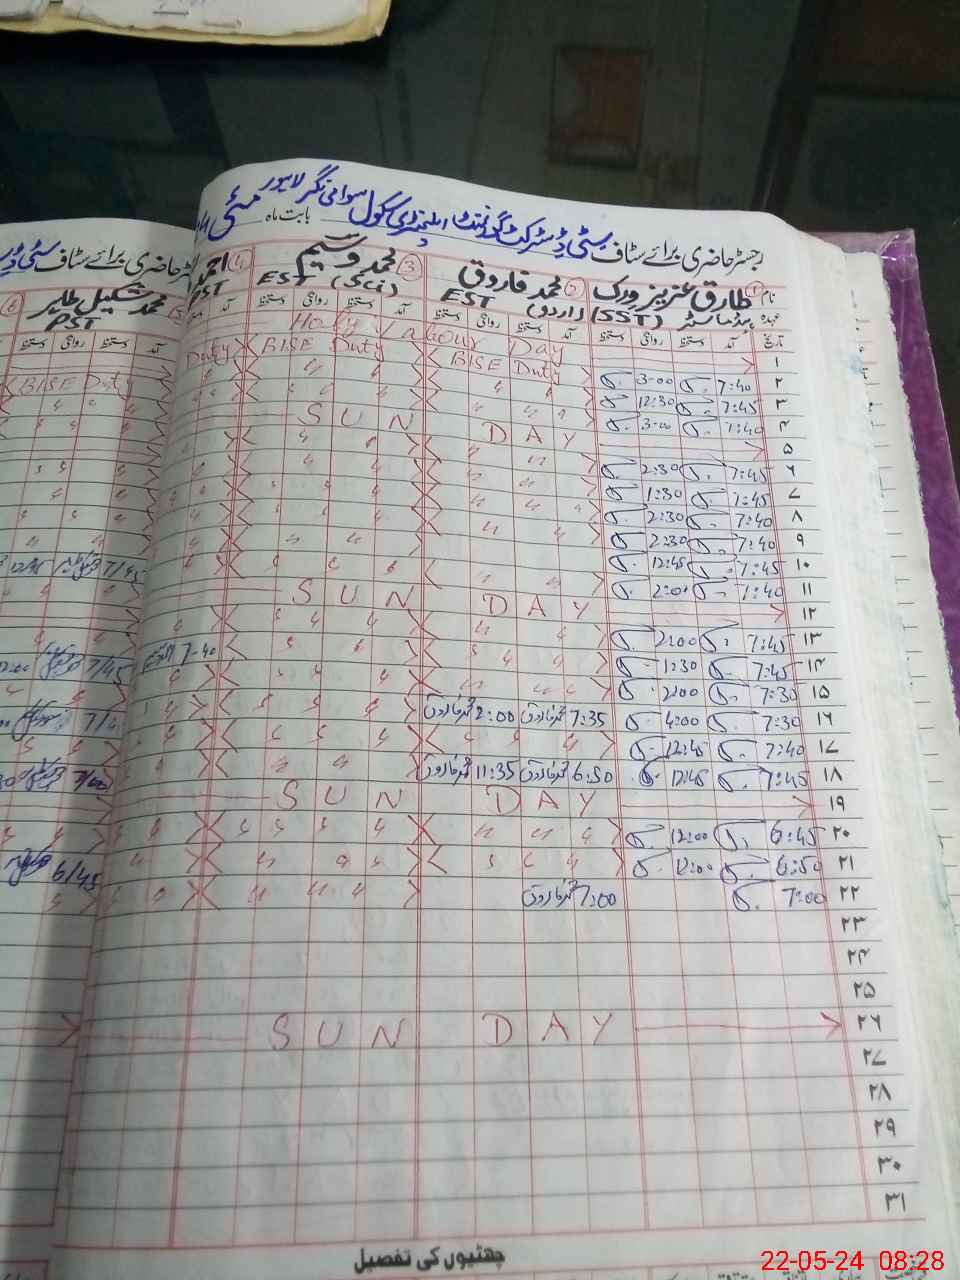 رجسٹر حاضری برائے سٹاف سٹی ڈسٹرکٹ گورنمنٹ ایلیمنٹری سکول سوامی نگر لاہور بابت ماہ مئی
نام ① طارق عزیز ورک ② محمد فاروق ③ محمد وسیم ④ احمد
عہدہ ہیڈ ماسٹر (SST) EST (اردو) EST (Sci) PST
تاریخ آمد دستخط روانگی دستخط آمد دستخط روانگی دستخط آمد دستخط روانگی دستخط آمد
۱ Holy Labour Day
۲ 7:40 3-00 BISE Duty BISE Duty Duty
۳ 7:45 12:30 〃 〃 〃
۴ 7:40 3-00 〃 〃 〃
۵ SUN DAY
۶ 7:45 2:30 〃 〃
۷ 7:45 1:30 〃 〃
۸ 7:40 2:30 〃 〃
۹ 7:40 2:30 〃 〃
۱۰ 7:45 12:45 〃 〃
۱۱ 7:40 2:00 〃 〃
۱۲ SUN DAY
۱۳ 7:45 2:00 〃 〃
۱۴ 7:45 1:30 〃 〃 7-40
۱۵ 7:30 2:00 〃 〃
۱۶ 7:30 4:00 7:35 محمد فاروق 2:00 محمد فاروق 〃
۱۷ 7:40 12:45 〃 〃
۱۸ 7:45 12:45 6:50 محمد فاروق 11:35 محمد فاروق 〃
۱۹ SUN DAY
۲۰ 6:45 12:00 〃 〃
۲۱ 6:50 12:00 〃 〃
۲۲ 7:00 7:00 محمد فاروق 〃
۲۳
۲۴
۲۵
۲۶ SUN DAY
۲۷
۲۸
۲۹
۳۰
۳۱
چھٹیوں کی تفصیل
حاضری برائے سٹاف سٹی
⑤ محمد شکیل طاہر ⑥
PST
آمد دستخط روانگی دستخط
BISE Duty
7/45 12/45
7/45
7/00
6/45
22-05-24 08:28